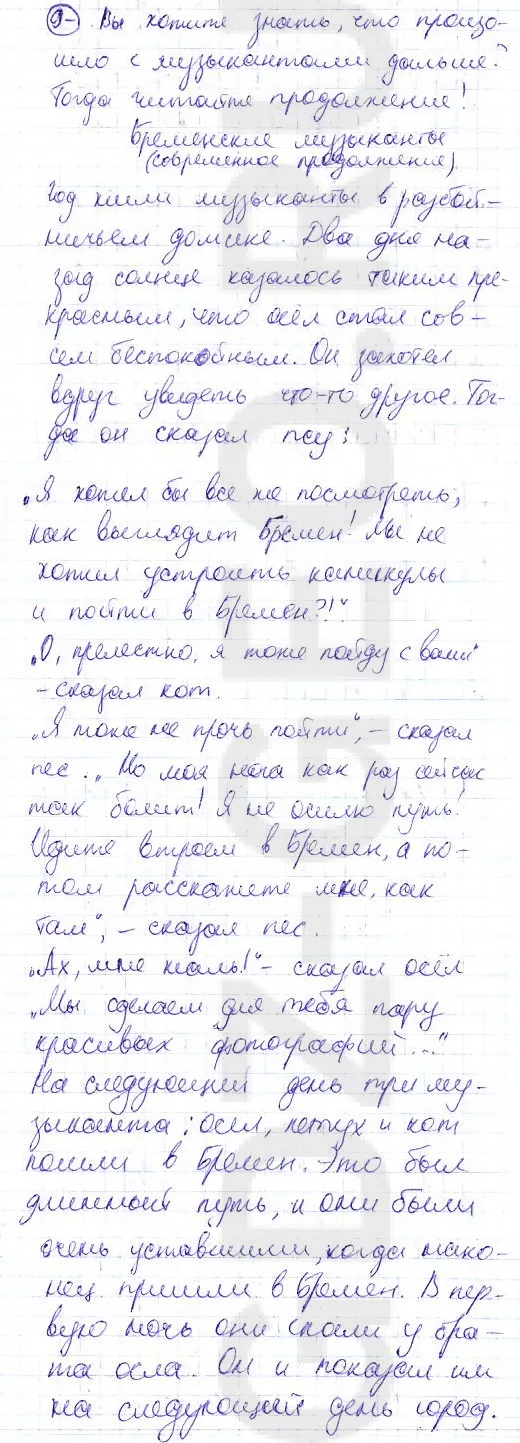 9- Вы хотите знать, что произо-
шло с музыкантами дальше?
Тогда читайте продолжение!
Бременские музыканты
(современное продолжение)
Год жили музыканты в разбой-
ничьем домике. Два дня на-
зад солнце казалось таким пре-
красным, что осёл стал сов-
сем беспокойным. Он захотел
вдруг увидеть что-то другое. Тог-
да он сказал псу:
„Я хотел бы все же посмотреть,
как выглядит Бремен! Мы не
хотим устроить каникулы
и пойти в Бремен?!"
„О, прелестно, я тоже пойду с вами"
- сказал кот.
„Я тоже не прочь пойти", - сказал
пес. „Но моя нога как раз сейчас
так болит! Я не осилю путь!
Идите втроем в Бремен, а по-
том расскажете мне, как
там", - сказал пес.
„Ах, мне жаль!" - сказал осёл
„Мы сделаем для тебя пару
красивых фотографий..."
На следующий день три му-
зыканта: осел, петух и кот
пошли в Бремен. Это был
длинный путь, и они были
очень уставшими, когда нако-
нец пришли в Бремен. В пер-
вую ночь они спали у бра-
та осла. Он и показал им
на следующий день город.
GDZ-GEO.RU